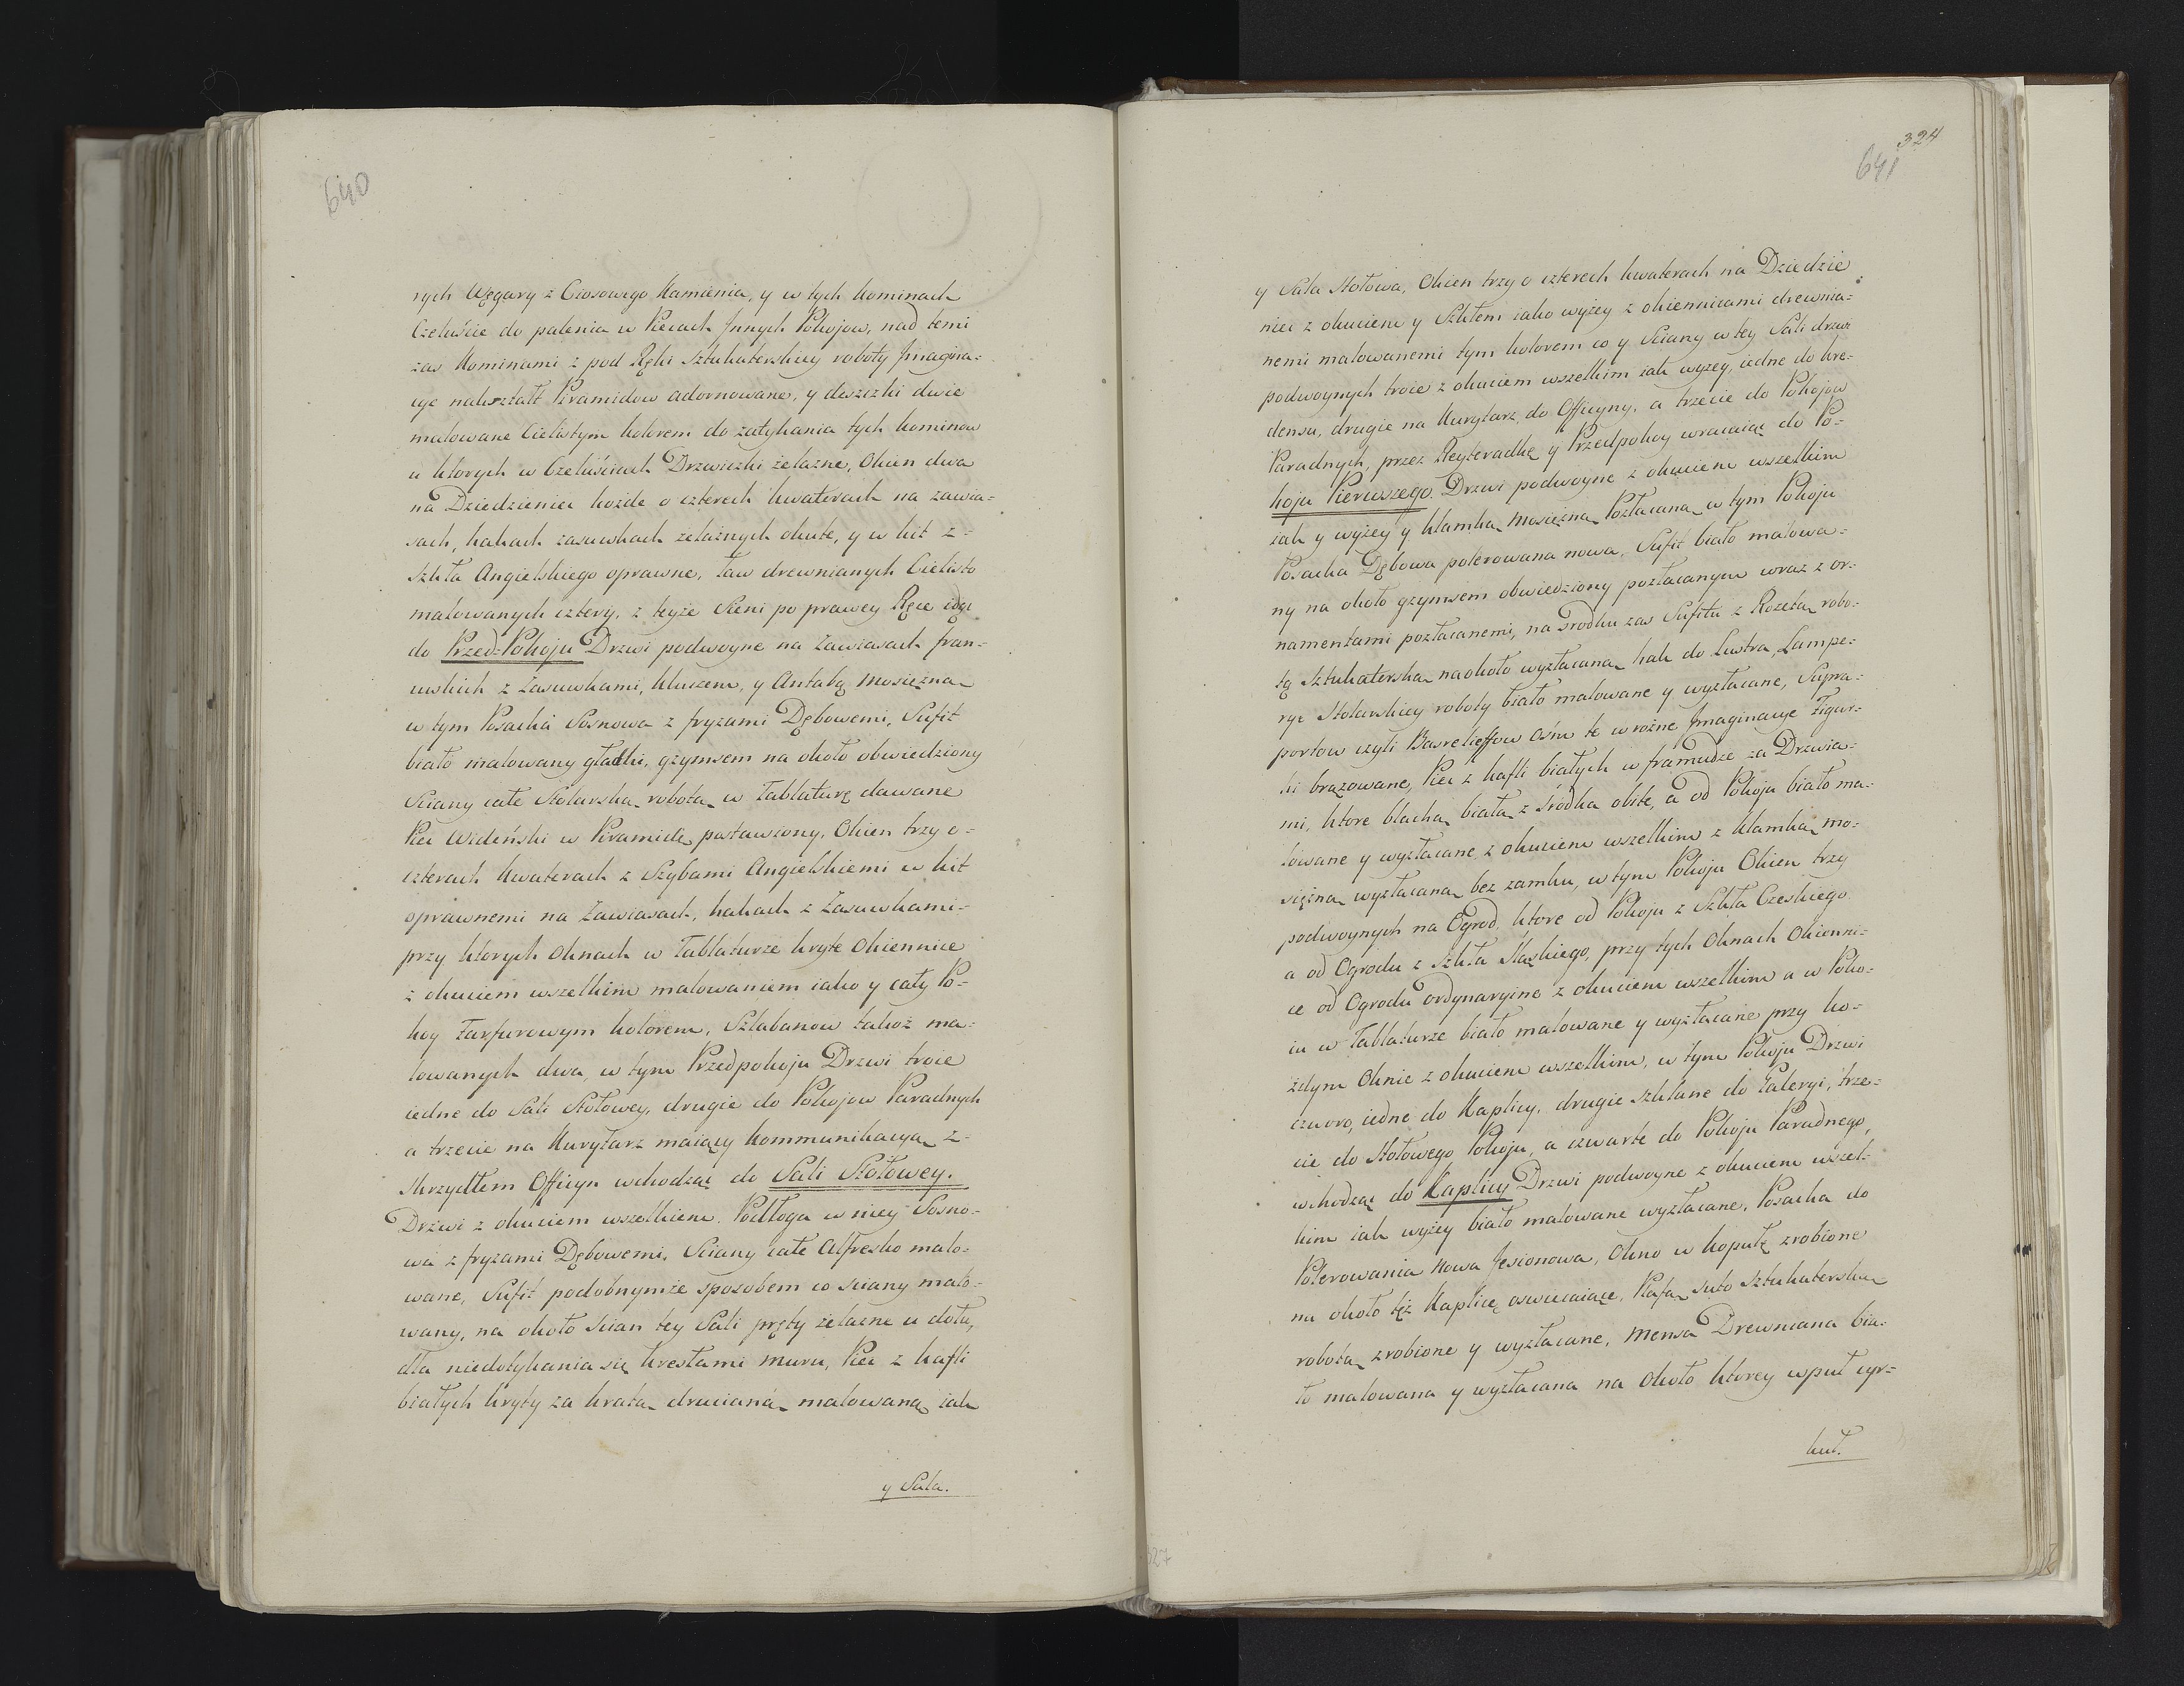 640
rych Węgary z Ciosowego Kamienia, y w tych kominach
Czeluście do palenia w Piecach Jnnych Pokojow, nad temi
zas Kominami z pod Ręki Sztukaterskiey roboty Jmagina=
cye nakształt Piramidow adornowane, y deszczki dwie
malowane Cielistym kolorem do zatykania tych kominow
u ktorych w Czeluściach Drzwiczki żelazne, Okien dwa
na Dziedzieniec kożde o czterech kwaterach na zawia=
sach, hakach zasuwkach żelaznych okute, y w kit z=
szkła Angielskiego oprawne, ław drewnianych Cielisto
malowanych cztery, z teyże Sieni po prawey Ręce idąc
do Przed=Pokoju Drzwi podwoyne na Zawiasach fran=
cuskich z Zasuwkami, kluczem, y Antabą mosiężną
w tym Posacka Sosnowa z fryzami Dębowemi, Sufit
biało malowany gładki, gzymsem na około obwiedziony
Sciany całe Stolarską robotą w Tablaturę dawane
Piec Wideński w Piramidę postawiony, Okien trzy o=
czterach kwaterach z Szybami Angielskiemi w kit
oprawnemi na Zawiasach, hakach z Zasuwkami=
przy ktorych Oknach w Tablaturze kryte Okiennice
z okuciem wszelkim malowaniem iako y cały Po=
koy Farfurowym kolorem, Szlabanow takoż ma=
lowanych dwa, w tym Przedpokoju Drzwi troie
iedne do Sali Stołowey, drugie do Pokojow Paradnych
a trzecie na Kurytarz maiący kommunikacyą z=
skrzydłem Officyn wchodząc do Sali Stołowey.
Drzwi z okuciem wszelkiem, Podłoga w niey Sosno=
wa z fryzami Dębowemi, Sciany całe Alfresko malo=
wane, Sufit podobnymże sposobem co sciany malo=
wany, na około scian tey Sali pręty żelazne u dołu,
dla niedotykania się krzesłami muru, Piec z kafli
białych kryty za kratą drucianą malowaną iak
y Sala.
324
641
y Sala Stołowa, Okien trzy o czterech kwaterach na Dziedzie
niec z okuciem y Szkłem iako wyżey z okiennicami drewnia=
nemi malowanemi tym kolorem co y Sciany w tey Sali drzwi
podwoynych troie z okuciem wszelkim iak wyżey, iedne do kre=
densu, drugie na Kurytarz do Officyny, a trzecie do Pokojow
Paradnych, przez Reyteradkę y Przedpokoy wracaiąc do Po=
koju Pierwszego. Drzwi podwoyne z okuciem wszelkim
iak y wyżey y klamką Mosiężną Pozłacaną w tym Pokoju
Posacka Dębowa polerowana nowa, Sufit biało malowa=
ny na około gzymsem obwiedziony pozłacanym wraz z or=
namentami pozłacanemi, na srodku zas Sufitu z Rozetą robo=
tą Sztukaterską naokoło wyzłacaną hak do Lustra, Lampe=
rye Stolarskiey roboty biało malowane y wyzłacane, Supra=
portow czyli Basrelieffow Ośm te w rożne Jmaginacye Figur=
ki brązowane, Piec z kafli białych w framudze za Drzwia=
mi, ktore blachą białą z środka obite, a od Pokoju biało ma=
lowane y wyzłacane z okuciem wszelkim z klamką mo=
siężną wyzłacaną bez zamku, w tym Pokoju Okien trzy
podwoynych na Ogrod, ktore od Pokoju z Szkła Czeskiego
a od Ogrodu z Szkła Sląskiego, przy tych Oknach Okienni=
ce od Ogrodu ordynaryine z okuciem wszelkim a w Poko=
iu w Tablaturze biało malowane y wyzłacane przy ko=
żdym Oknie z okuciem wszelkim, w tym Pokoju Drzwi
czworo, iedne do Kaplicy, drugie szklane do Galeryi, trze=
cie do Stołowego Pokoju, a czwarte do Pokoju Paradnego,
wchodząc do Kaplicy Drzwi podwoyne z okuciem wszel=
kim iak wyżey biało malowane wyzłacane, Posacka do
Polerowania Nowa Jesionowa, Okno w kopułę zrobione
na około też Kaplicę oswiecaiące, Plafą suto sztukaterską
robotą zrobione y wyzłacane, Mensa Drewniana bia=
ło malowana y wyzłacana na około ktorey wpuł cyr=
kuł.
327